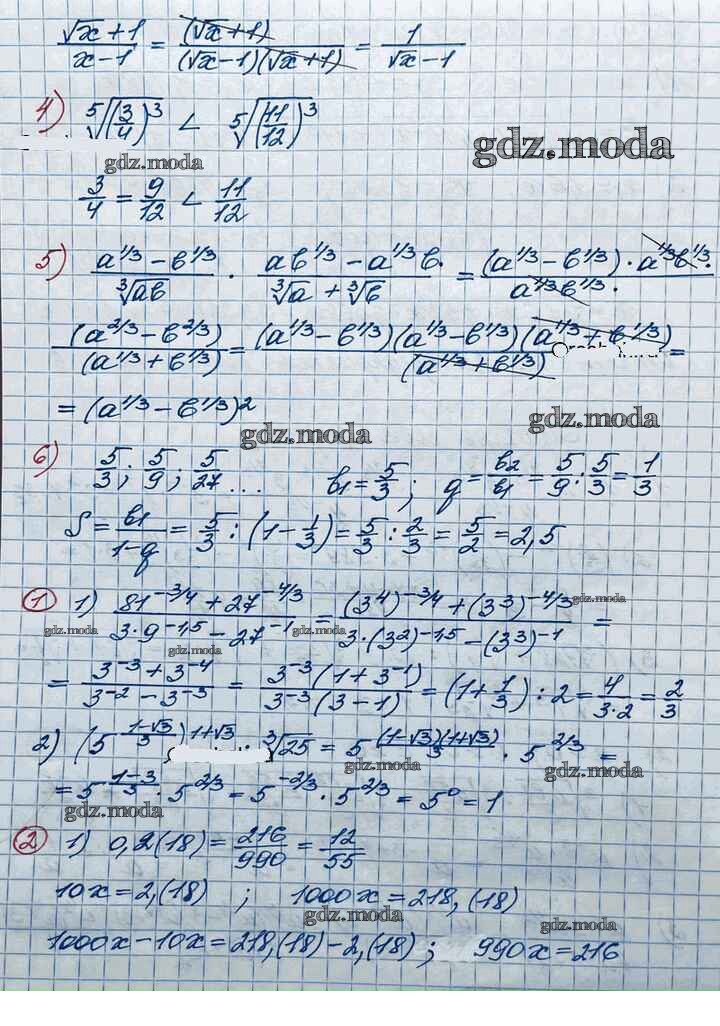 (√x + 1)/(x − 1) = (√x + 1)/((√x − 1)(√x + 1)) = 1/(√x − 1)
4) ⁵√(3/4)³ < ⁵√(11/12)³
gdz.moda
gdz.moda
3/4 = 9/12 < 11/12
5) (a^1/3 − b^1/3)/∛ab · (ab^1/3 − a^1/3 b)/(∛a + ∛b) = ((a^1/3 − b^1/3) · a^1/3 b^1/3 ·)/(a^1/3 b^1/3 ·
(a^2/3 − b^2/3)/(a^1/3 + b^1/3) = (a^1/3 − b^1/3)(a^1/3 − b^1/3)(a^1/3 + b^1/3)/(a^1/3 + b^1/3) =
= (a^1/3 − b^1/3)²
gdz.moda
gdz.moda
6) 5/3; 5/9; 5/27 ... b1 = 5/3; q = b2/b1 = 5/9 : 5/3 = 1/3
S = b1/(1−q) = 5/3 : (1 − 1/3) = 5/3 : 2/3 = 5/2 = 2,5
1 1) (81^−3/4 + 27^−4/3)/(3·9^−1,5 − 27^−1) = ((3^4)^−3/4 + (3^3)^−4/3)/(3·(3²)^−1,5 − (3³)^−1) =
gdz.moda
gdz.moda
gdz.moda
gdz.moda
= (3^−3 + 3^−4)/(3^−2 − 3^−3) = 3^−3(1 + 3^−1)/3^−3(3 − 1) = (1 + 1/3) : 2 = 4/(3·2) = 2/3
2) (5^(1−√3)/3)^1+√3 ∛25 = 5^((1−√3)(1+√3))/3 · 5^2/3 =
gdz.moda
gdz.moda
= 5^(1−3)/3 · 5^2/3 = 5^−2/3 · 5^2/3 = 5^0 = 1
gdz.moda
2 1) 0,2(18) = 216/990 = 12/55
10x = 2,(18) ; 1000x = 218,(18)
gdz.moda
gdz.moda
1000x − 10x = 218,(18) − 2,(18) ; 990x = 216
gdz.moda